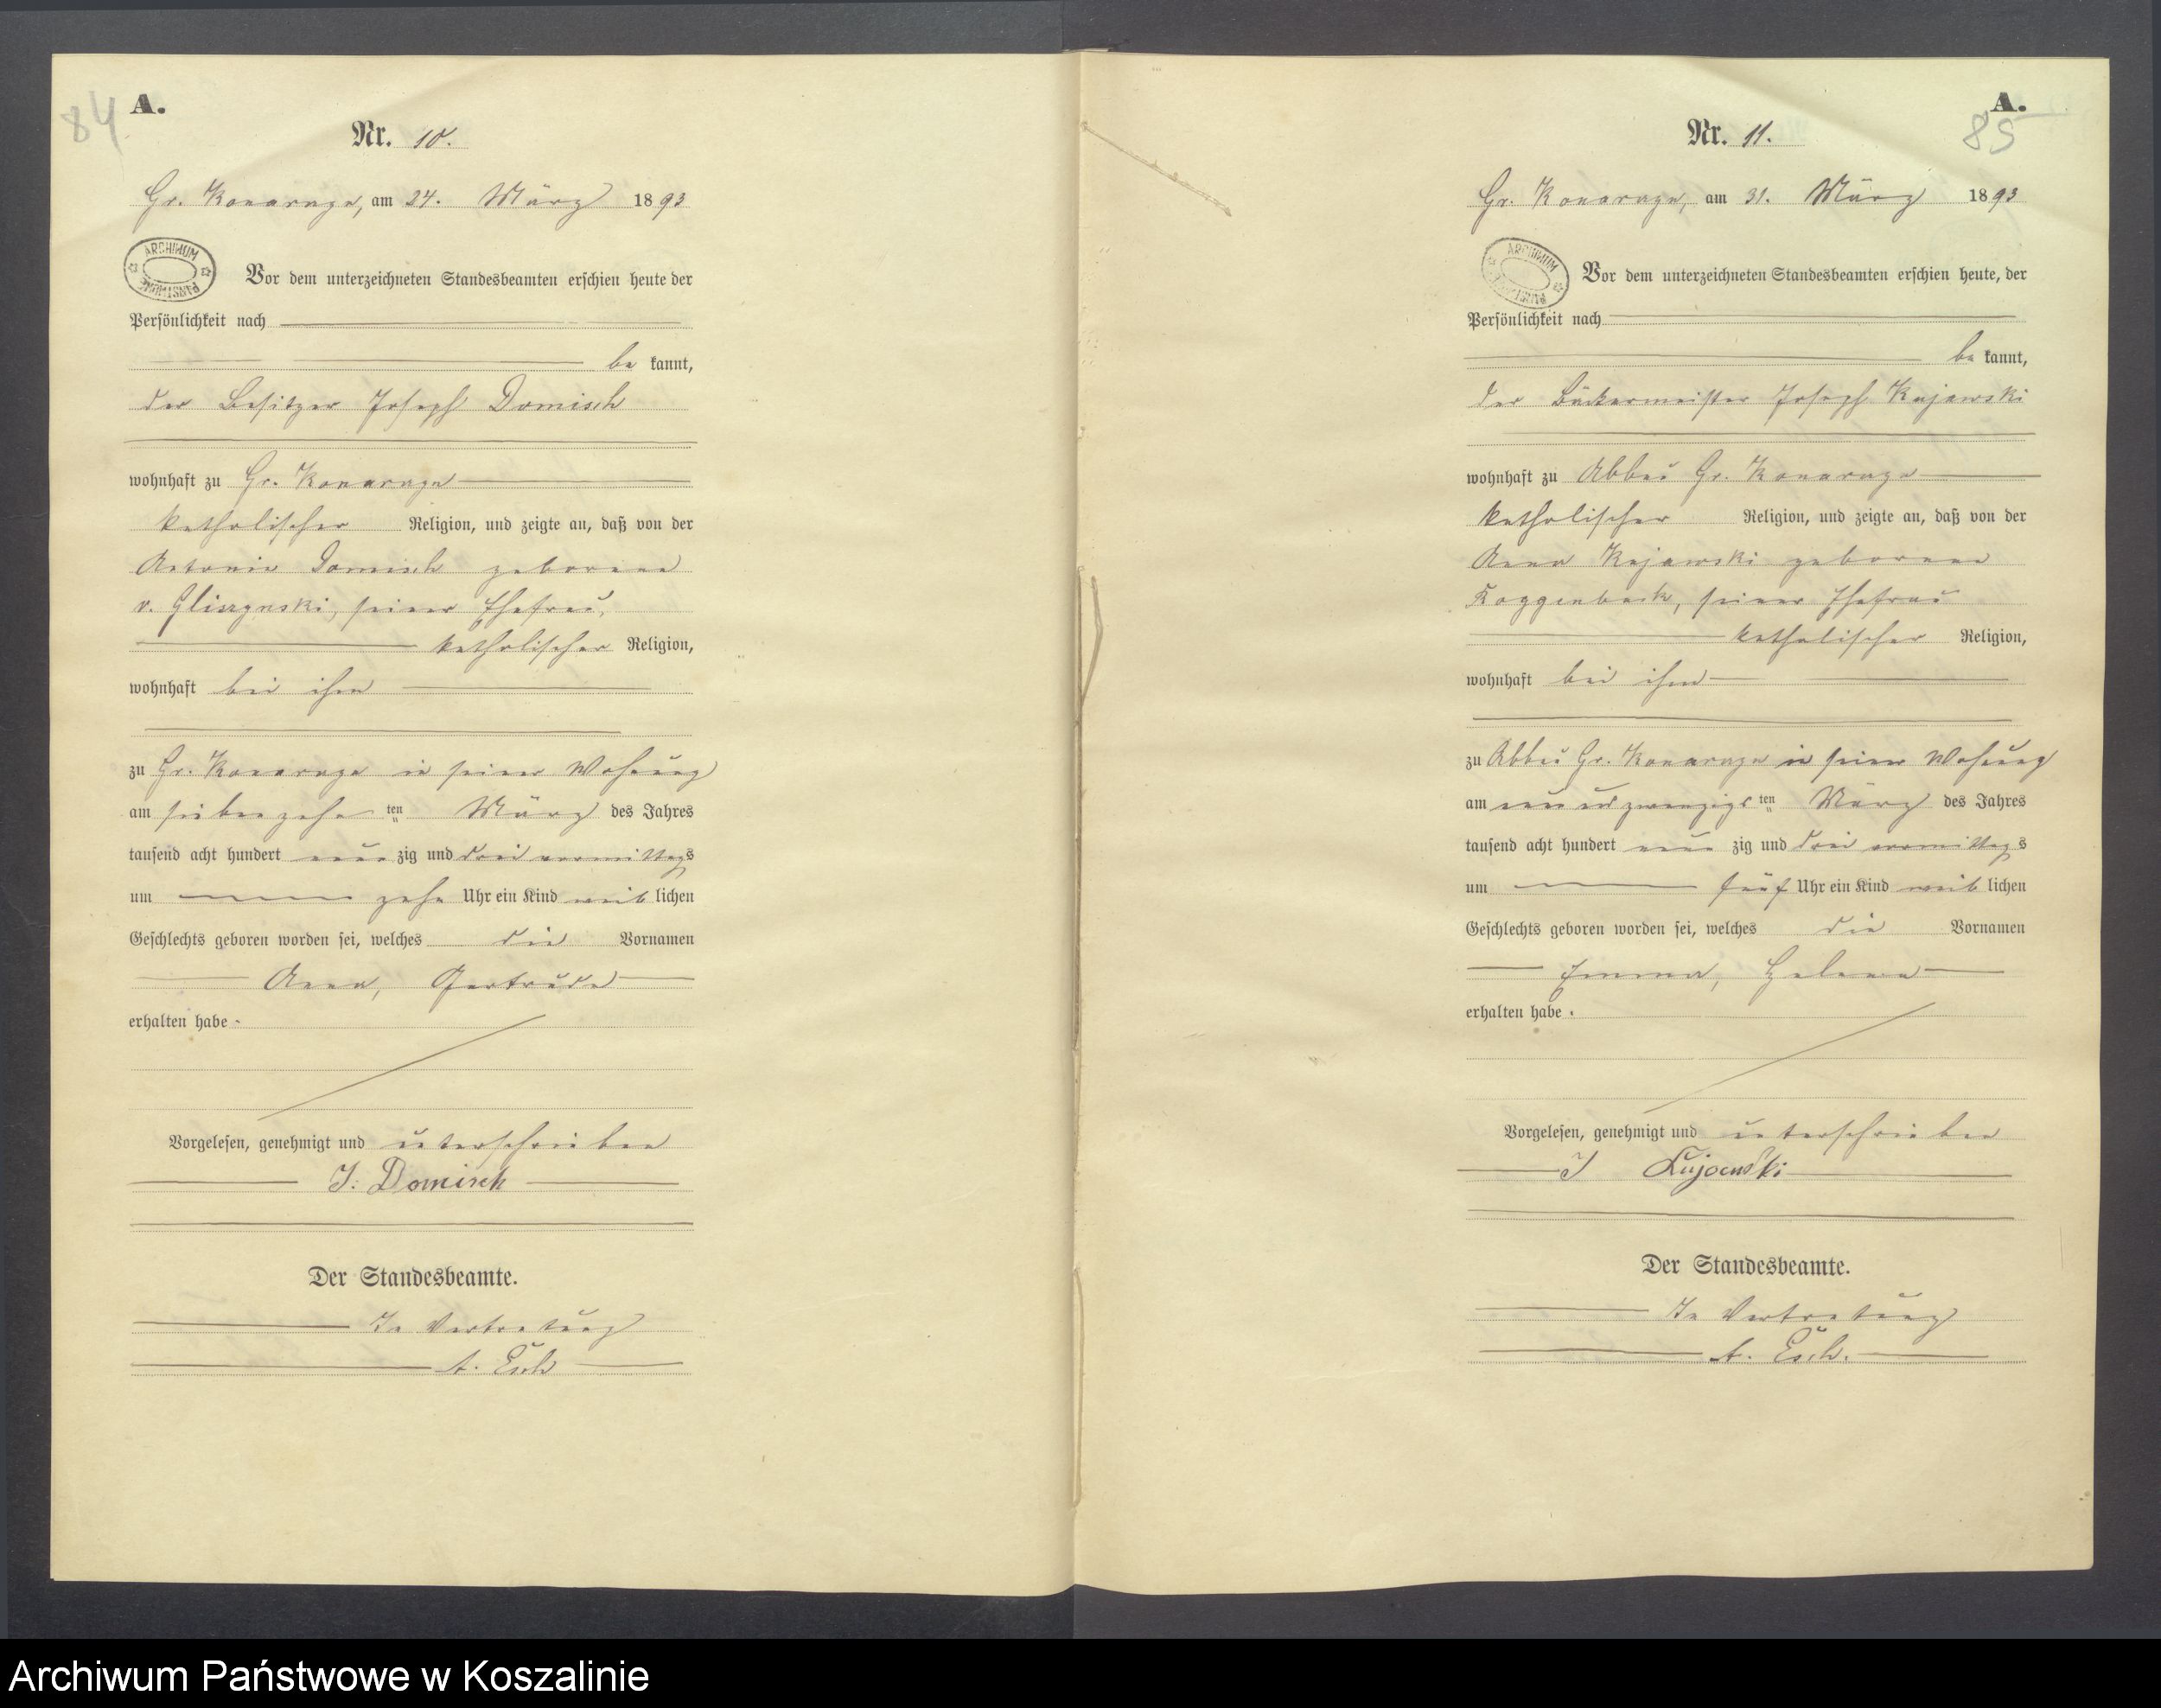 84
A.
Nr. 10.
Gr. Konarzyn, am 24. März 1893
ARCHIWUM
Vor dem unterzeichneten Standesbeamten erschien heute der
Persönlichkeit nach
be kannt,
der Besitzer Joseph Domisch
wohnhaft zu Gr. Konarzyn
katholischer Religion, und zeigte an, daß von der
Antonie Domisch geborene
v. Gliszynski, seiner Ehefrau,
katholischer Religion,
wohnhaft bei ihm
zu Gr. Konarzyn in seiner Wohnung
am siebenzehn ten März des Jahres
tausend acht hundert neun zig und drei vormittags
um zehn Uhr ein Kind weib lichen
Geschlechts geboren worden sei, welches die Vornamen
Anna, Gertrude
erhalten habe.
Vorgelesen, genehmigt und unterschrieben
J. Domisch
Der Standesbeamte.
In Vertretung
A. Esch
A.
85
Nr. 11.
Gr. Konarzyn, am 31. März 1893
ARCHIWUM
Vor dem unterzeichneten Standesbeamten erschien heute, der
Persönlichkeit nach
be kannt,
der Bäckermeister Joseph Kujawski
wohnhaft zu Abbau Gr. Konarzyn
katholischer Religion, und zeigte an, daß von der
Anna Kujawski geborene
Roggenbuck, seiner Ehefrau
katholischer Religion,
wohnhaft bei ihm
zu Abbau Gr. Konarzyn in seiner Wohnung
am neun und zwanzigs ten März des Jahres
tausend acht hundert neun zig und drei vormittags
um fünf Uhr ein Kind weib lichen
Geschlechts geboren worden sei, welches die Vornamen
Emma, Helena
erhalten habe.
Vorgelesen, genehmigt und unterschrieben
J Kujawski
Der Standesbeamte.
In Vertretung
A. Esch.
Archiwum Państwowe w Koszalinie